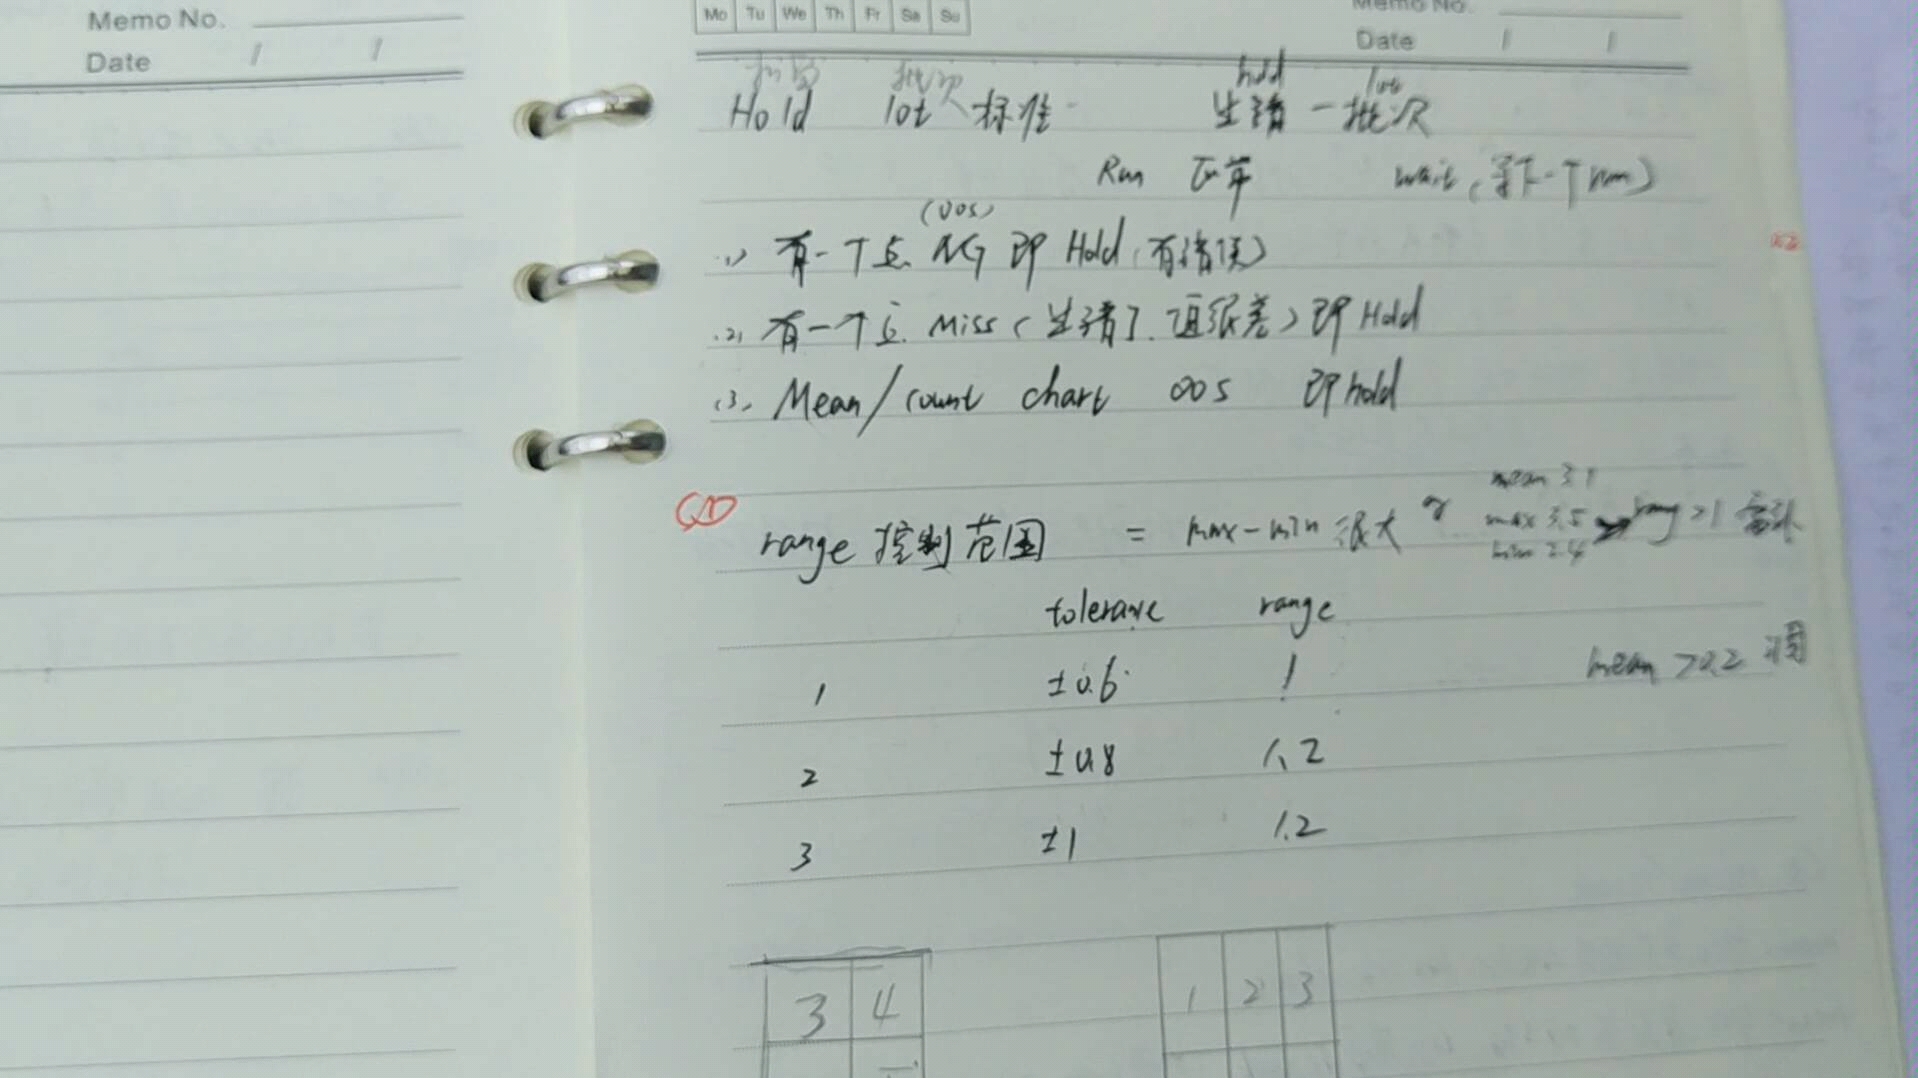 Memo No.
Date / /
Mo Tu We Th Fr Sa Su
Memo No.
Date / /
批次 hold lot
Hold lot 标准 一批次
Run 正常 wait (等下一个run)
(OOS)
(1) 有一个点 NG 即 Hold
(2) 有一个点 Miss ( 值很差) 即 Hold
(3) Mean/count chart OOS 即 hold
mean 3.1
range 控制范围 = max-min 很大 max 3.5 rang >1
min 2.4
tolerance range
mean >0.2 调
1 ±0.6 1
2 ±0.8 1.2
3 ±1 1.2
3 4
1 2 3